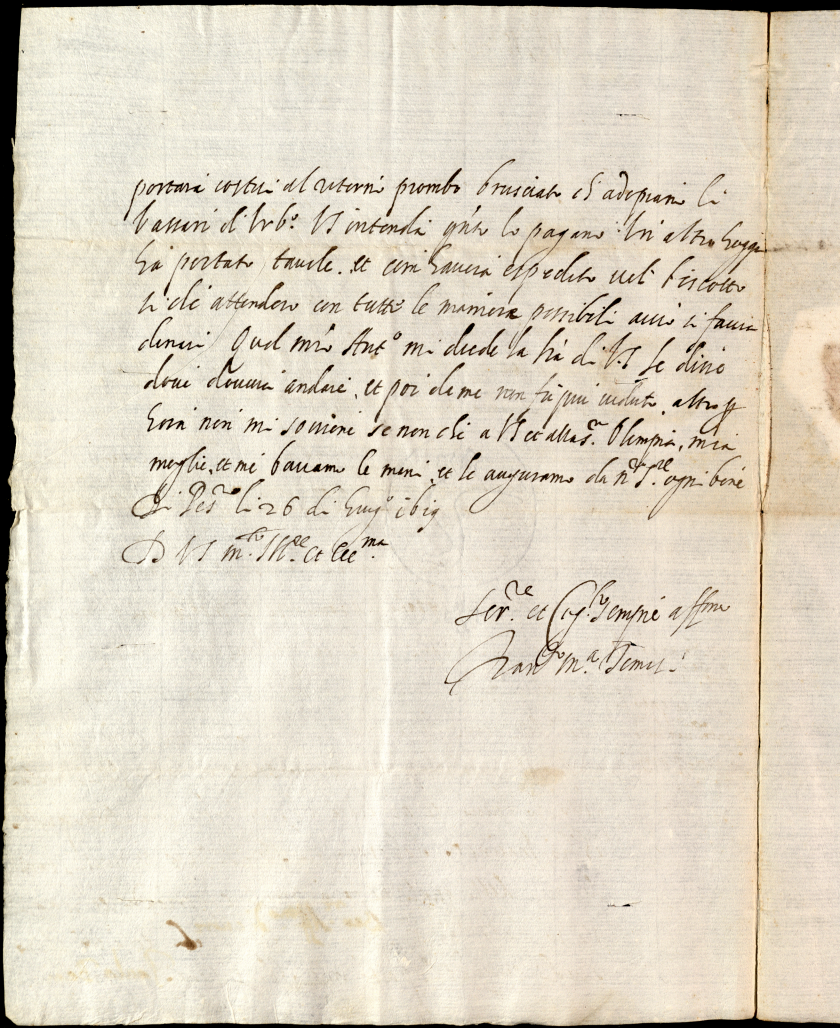 portarà costui al ritorno piombo brusciato ch'adoprano li
Vassari d'Urb.º VS intenda q.nto lo pagano. Un' altro hoggi
hà portato tavole. et come haverà espedito
si de' attendere con tutte le maniere possibili acciò si faccia
denari. Quel mr.º Ant.º mi diede la tra di V.S. le dissi
dove doveva andare, et poi da me non fù più veduto. altro p
hora non mi soviene se non che a VS et alla s.ra Olimpia, mia
moglie, et me baciamo le mani, et le auguramo da n.ro S.re ogni bene
Di Pes.ro li 26 di 1619
D VS m.to Ill.re et Ecc.ma
Ser.re et Cog.to sempre affmo
Fran.co M.a